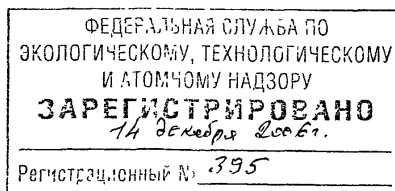 ФЕДЕРАЛЬНАЯ СЛУЖБА ПО
ЭКОЛОГИЧЕСКОМУ, ТЕХНОЛОГИЧЕСКОМУ
И АТОМНОМУ НАДЗОРУ
ЗАРЕГИСТРИРОВАНО
14 декабря 2006г.
Регистрационный № 395